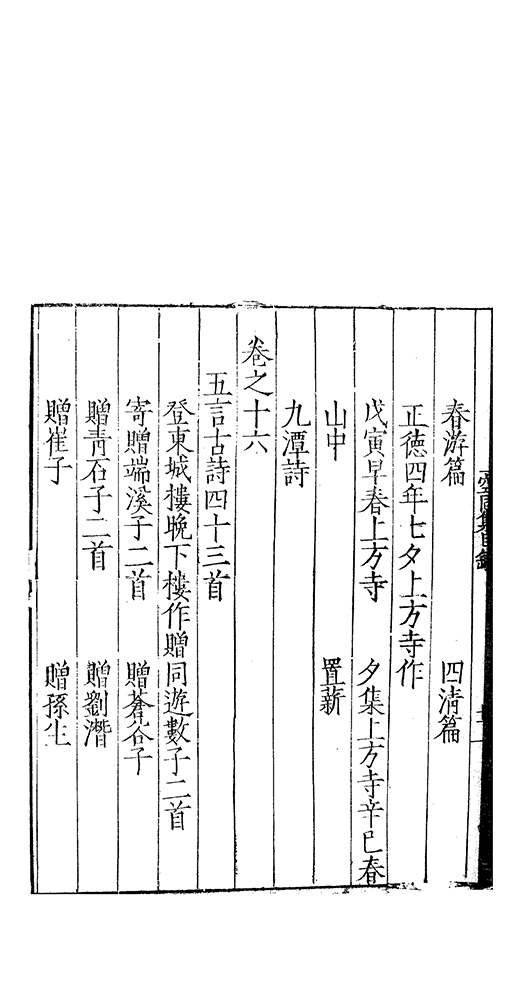 春游篇 四清篇
正德四年七夕上方寺作
戊寅早春上方寺 夕集上方寺辛巳春
山中 置薪
九潭詩
卷之十六
五言古詩四十三首
登東城樓晚下樓作贈同遊數子二首
寄贈端溪子二首 贈蒼谷子
贈青石子二首 贈劉潛
贈崔子 贈孫生